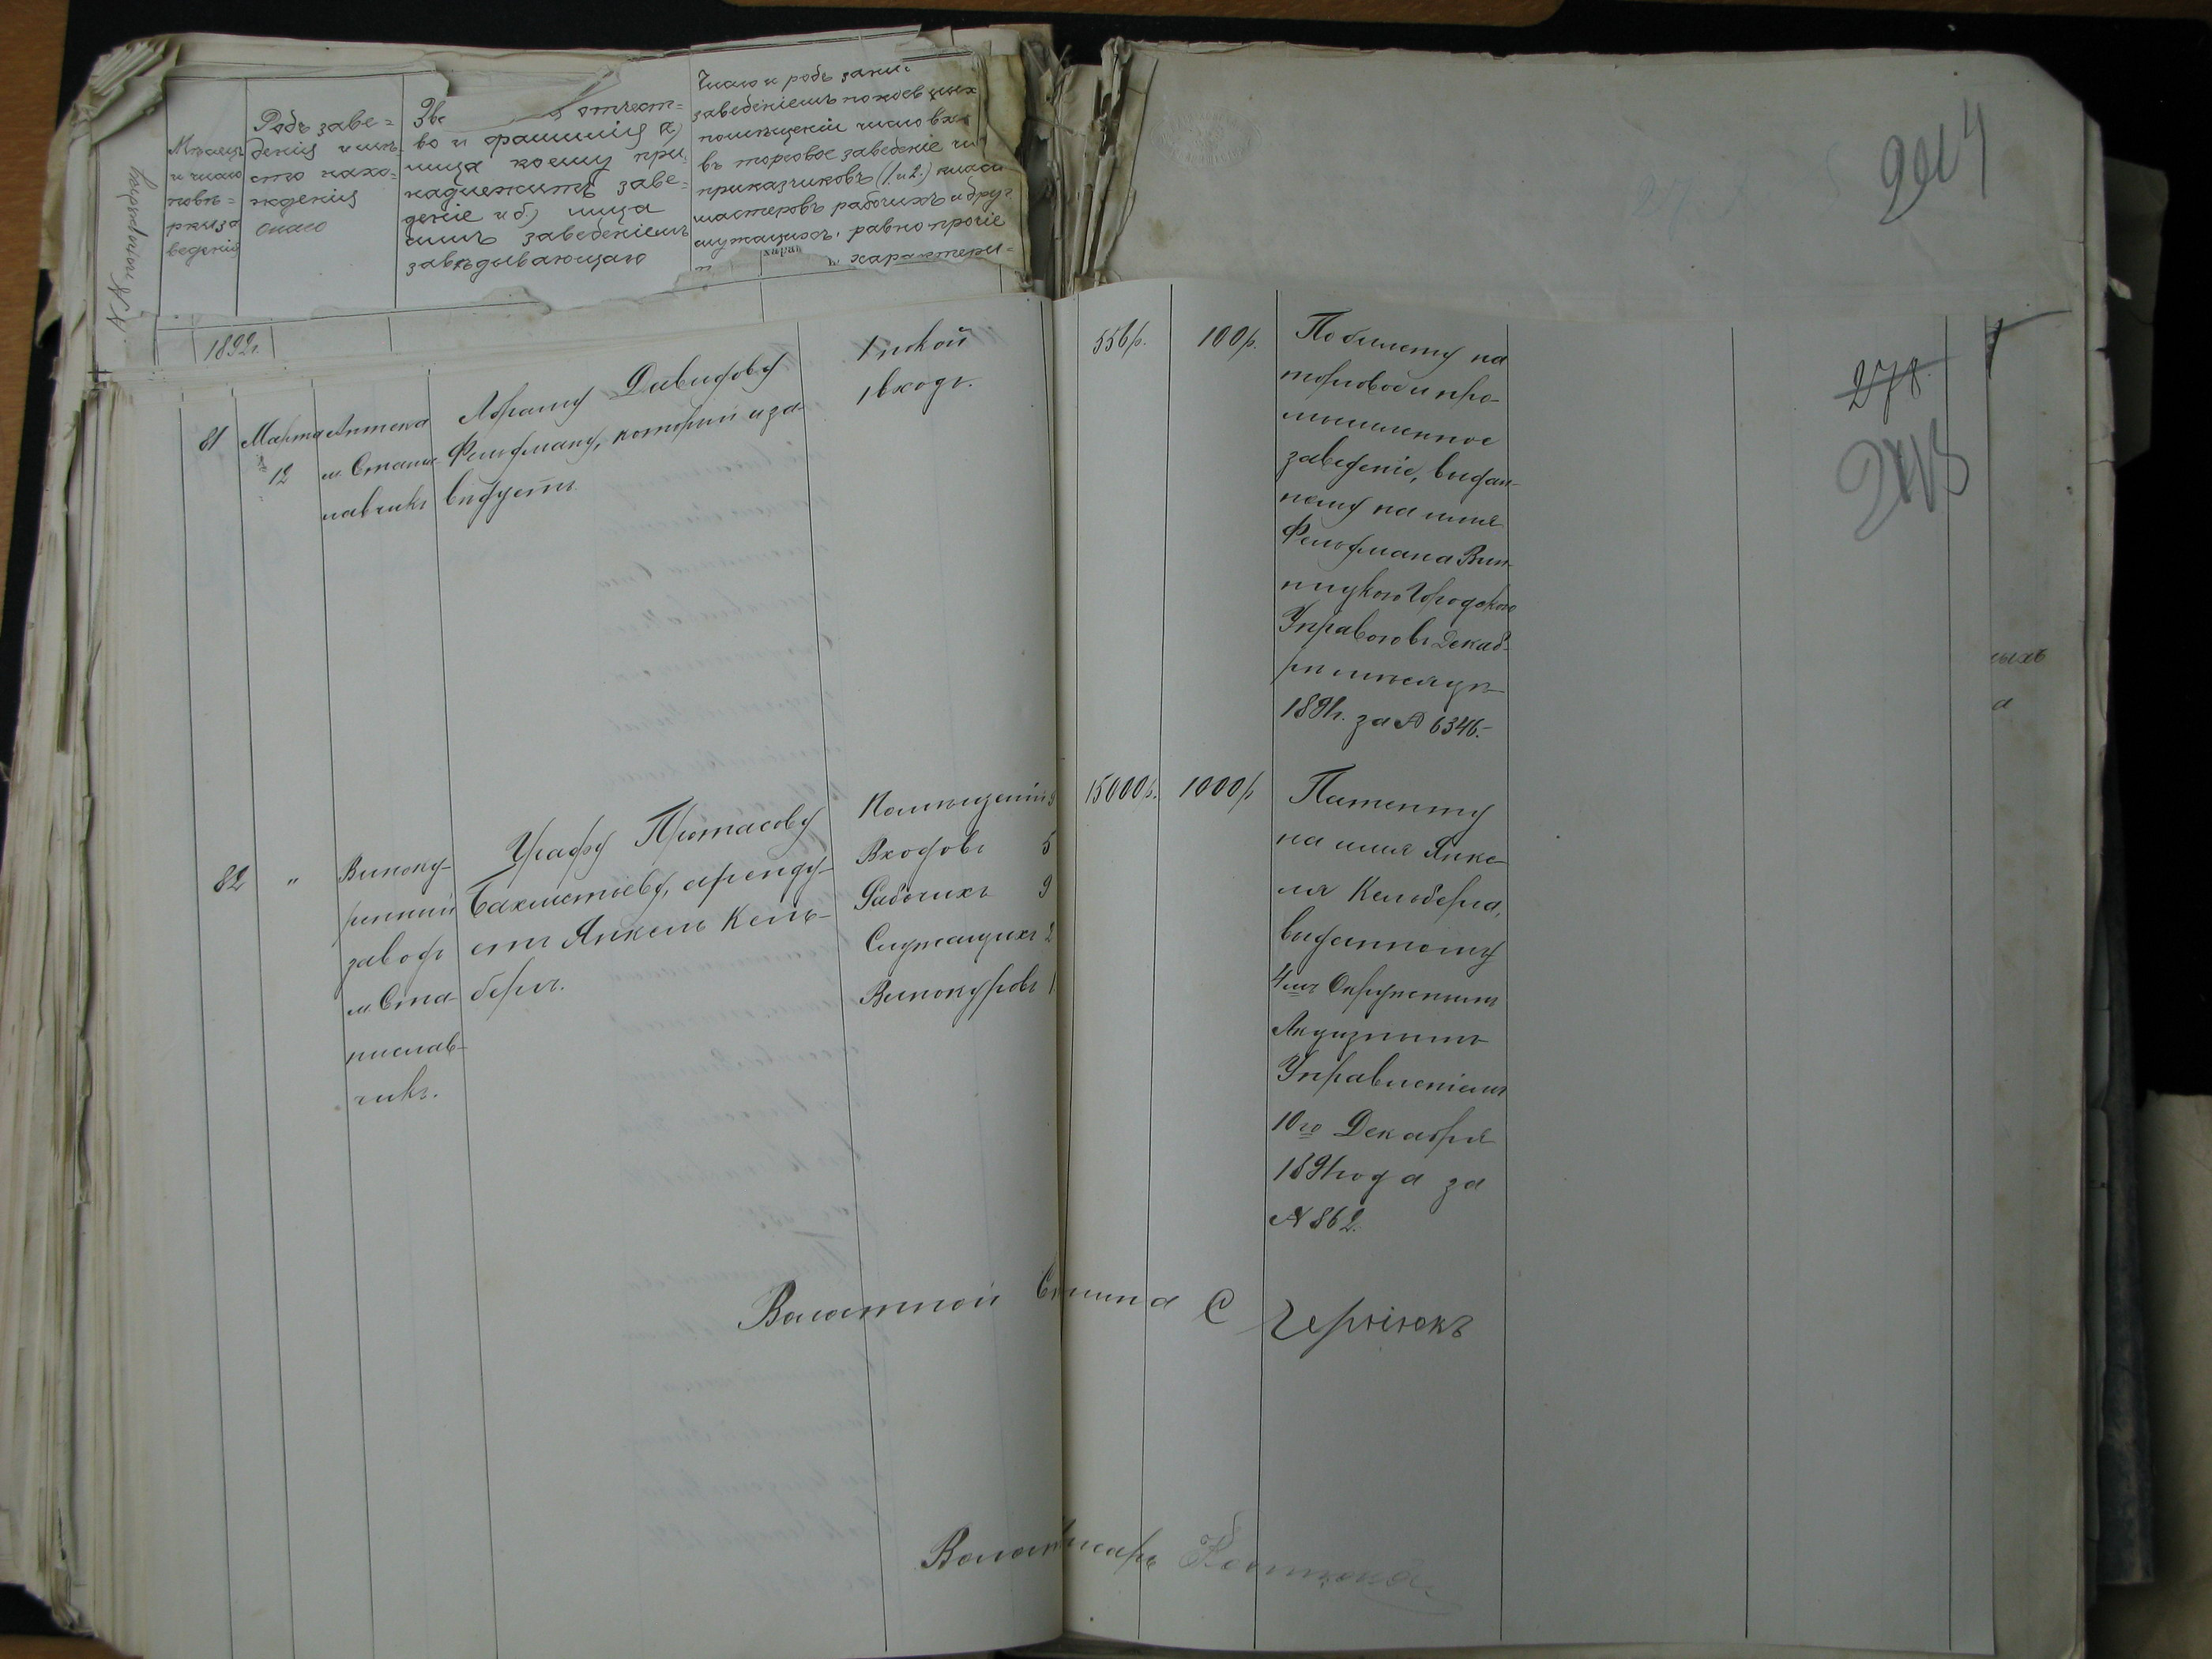 Мѣсяцъ
и число
повѣ=
рки за
веденія
Родъ заве=
денія и мѣ-
сто нахо-
жденія
онаго
Зва отчест=
во и фамилія а)
лица коему при-
надлежитъ заве=
деніе и б) лица
симъ заведеніемъ
завѣдывающаго
Число и родъ зани-
заведеніемъ покоевъ
помѣщеній число вхо
въ торговое заведеніе чи
приказчиковъ (1. и 2.) класс
мастеровъ рабочихъ и друг
служащихъ, равно прочіе
характери=
1892г.
81
Марта
12
Аптека
м. Стани
славчикъ
Абраму Давидову
Фельдману, который и за-
вѣдуетъ
1 покой
1 входъ.
556р.
100р.
По билету на
торговое и про-
мышленное
заведеніе, выдан-
ному на имя
Фельдмана Вин-
ницкою Городскою
Управою въ Декаб-
рѣ мѣсяцѣ
1891г. за № 6346.-
82
"
Виноку-
ренный
заводъ
м. Ста-
ниславъ-
чикъ.
Графу Протасову
Бахметьеву, аренду-
етъ Янкель Кель-
бергъ.
Помѣщеній
Входовъ 5
Рабочихъ 9
Служащихъ 2
Винокуровъ 1
15000р.
1000р
Патенту
на имя Янке-
ля Кельберга,
выданному
4мъ Окружнымъ
Акцизнымъ
Управленіемъ
10го Декабря
1891 года за
№ 862.
Волостной Стшина С
Волос Писарь
904
278
ныхъ
а